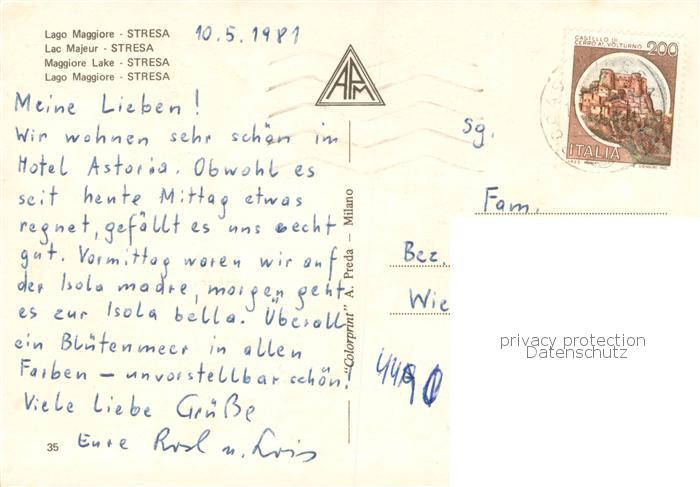 Lago Maggiore - STRESA
Lac Majeur - STRESA
Maggiore Lake - STRESA
Lago Maggiore - STRESA
10.5.1981
APM
CASTELLO DI
CERRO AL VOLTURNO 200
ITALIA
Meine Lieben!
Wir wohnen sehr schön im
Hotel Astoria. Obwohl es
seit heute Mittag etwas
regnet, gefällt es uns recht
gut. Vormittag waren wir auf
der Isola madre, morgen geht
es zur Isola bella. Überall
ein Blütenmeer in allen
Farben - unvorstellbar schön!
Viele liebe Grüße
Eure Rosl u. Lois
35
"Colorprint" A. Preda - Milano
Sg.
Fam.
Bez.
Wie
privacy protection
Datenschutz